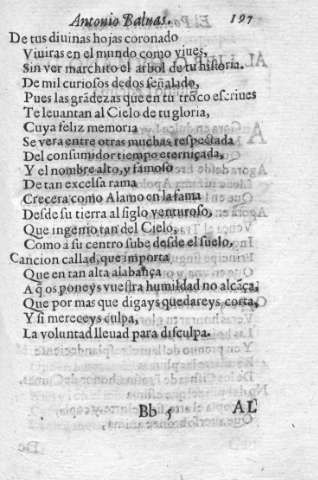 Antonio Baluas. 197
De tus diuinas hojas coronado
Viuiras en el mundo como viues,
Sin ver marchito el arbol de tu historia.
De mil curiosos dedos señalado,
Pues las grãdezas que en tu trõco escriues
Te leuantan al Cielo de tu gloria,
Cuya feliz memoria
Se vera entre otras muchas respectada
Del consumidor tiempo eterniçada,
Y el nombre alto, y famoso
De tan excelsa rama
Crecera como Alamo en la fama
Desde su tierra al siglo venturoso,
Que ingenio tan del Cielo,
Como a su centro sube desde el suelo,
Cancion callad, que importa
Que en tan alta alabãça
A q̃ os poneys vuestra humildad no alcãça,
Que por mas que digays quedareys corta,
Y si mereceys culpa,
La voluntad lleuad para disculpa.
Bb 5 AL